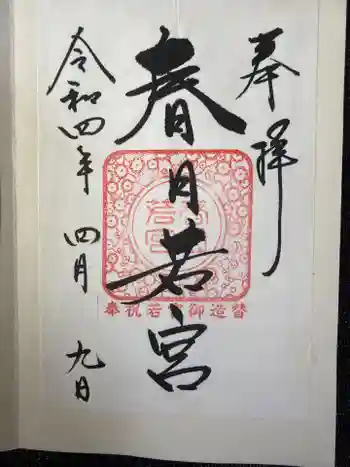 奉拝
春日若宮
令和四年 四月 九日
奉祝若宮御造替